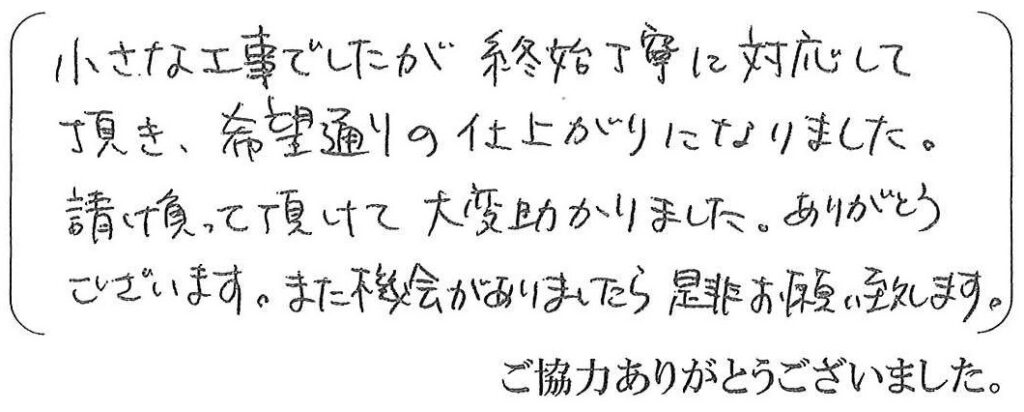 小さな工事でしたが 終始丁寧に対応して
頂き、希望通りの仕上がりになりました。
請け負って頂けて大変助かりました。ありがとう
ございます。また機会がありましたら是非お願い致します。
ご協力ありがとうございました。